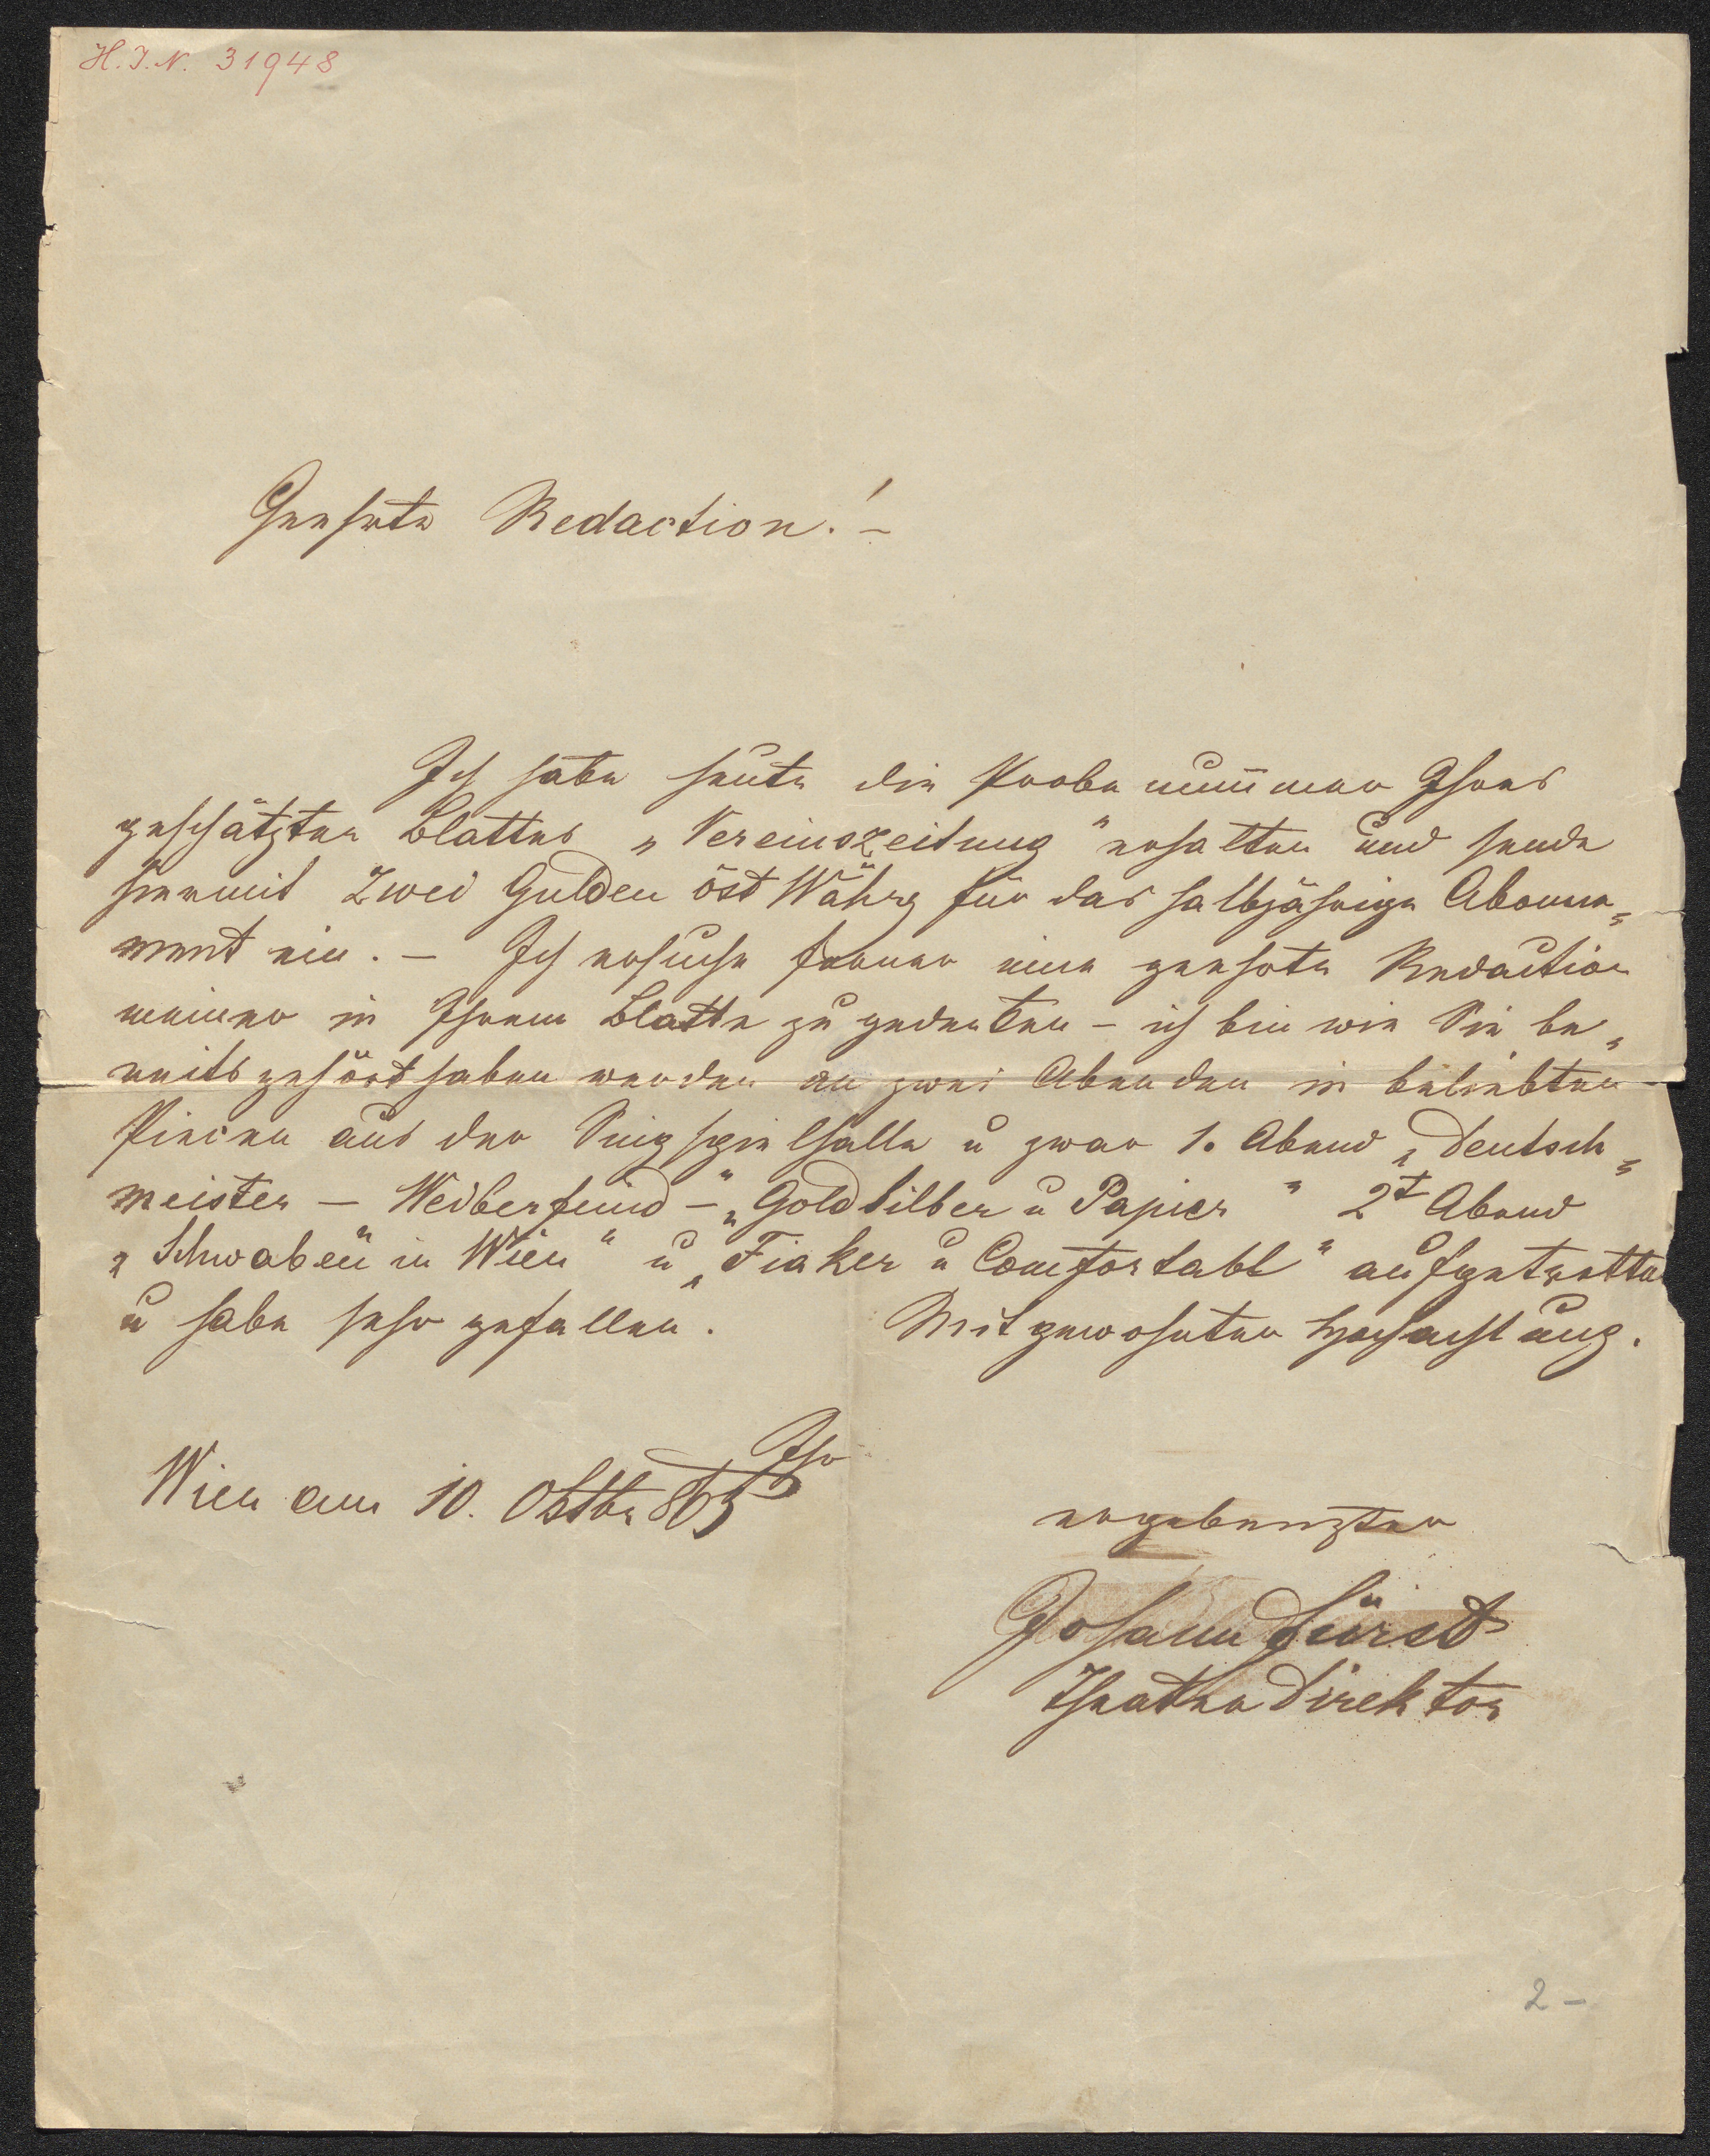 H.I.N. 31948
Geehrte Redaction! –
Ich habe heute die Probe nummer Ihres
geschätzten Blattes „Vereinszeitung" erhalten und sende
hiermit Zwei Gulden öst Währg für das halbjährige Abonne„
ment ein. – Ich ersuche ferner eine geehrte Redaction
meiner in Ihrem Blatte zu gedenken – ich bin wie Sie be„
reits gehört haben werden an zwei Abenden in beliebten
Piecen aus der Singspielhalle u zwar 1. Abend „Deutsch„
meister – Weiberfeind – „Gold Silber u Papier" 2t Abend
„Schwaben in Wien" u „Fiaker u Comfortabl" aufgetretten
u habe sehr gefallen. Mit gewohnter Hochachtung.
Ihr
Wien am 10. Oktbr 865
ergebenster
Johann Fürst
Theater Direktor
2 –